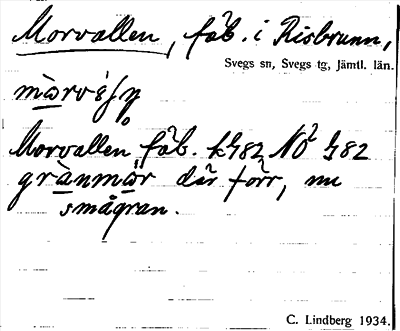 Morvallen, fäb. i Risbrunn,
Svegs sn, Svegs tg, Jämtl. län.
Morvallen fäb. k G82 NÖ² G82
grànmòr där förr, nu
smågran.
C. Lindberg 1934.